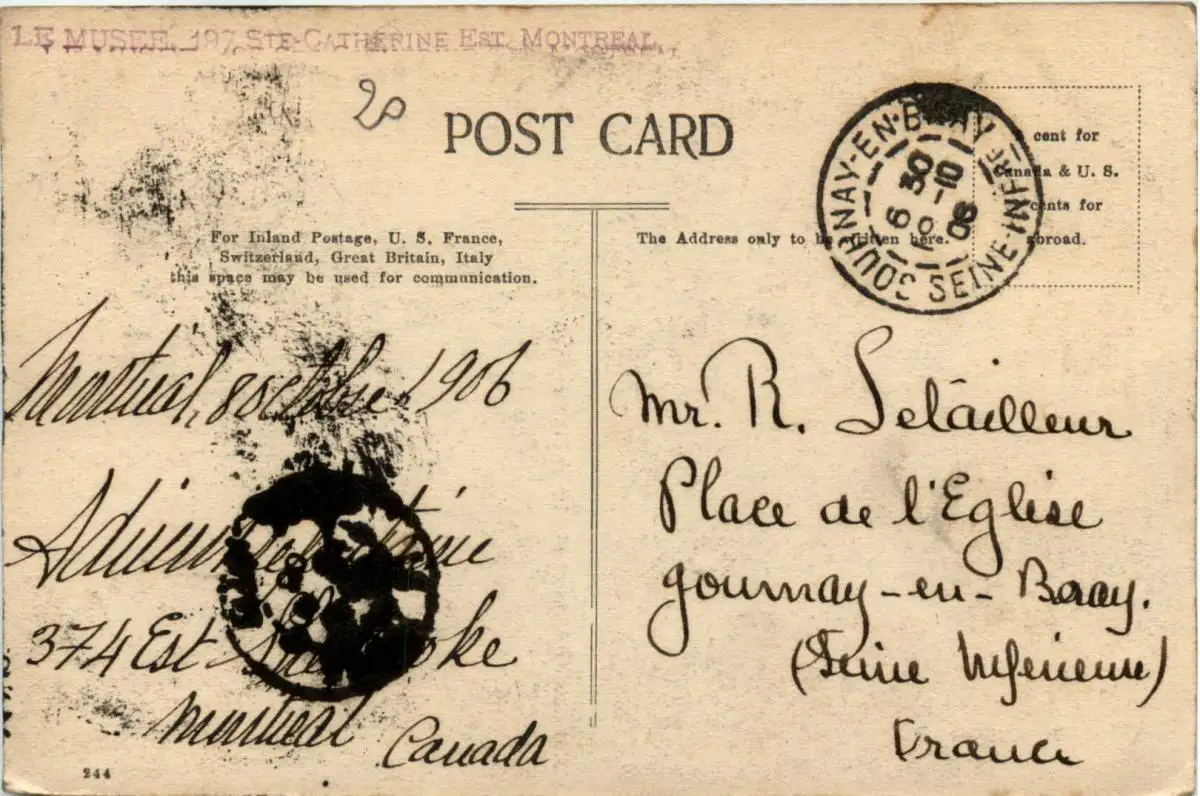 LE MUSEE, 197, STE-CATHERINE EST, MONTREAL,
20
POST CARD
GOURNAY-EN-BRAY
SEINE-INFRE
6 30
10
06
cent for
Canada & U. S.
cents for
abroad.
For Inland Postage, U. S. France,
Switzerland, Great Britain, Italy
this space may be used for communication.
The Address only to be written here.
Montréal, 8 octobre 1906
374 Est Sherbrooke
Montréal
Canada
Mr. R. Letailleur
Place de l'Eglise
Gournay-en-Bray.
(Seine Inférieure)
France
244